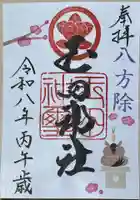 奉拝 八方除
玉田神社
令和八年 丙午歳